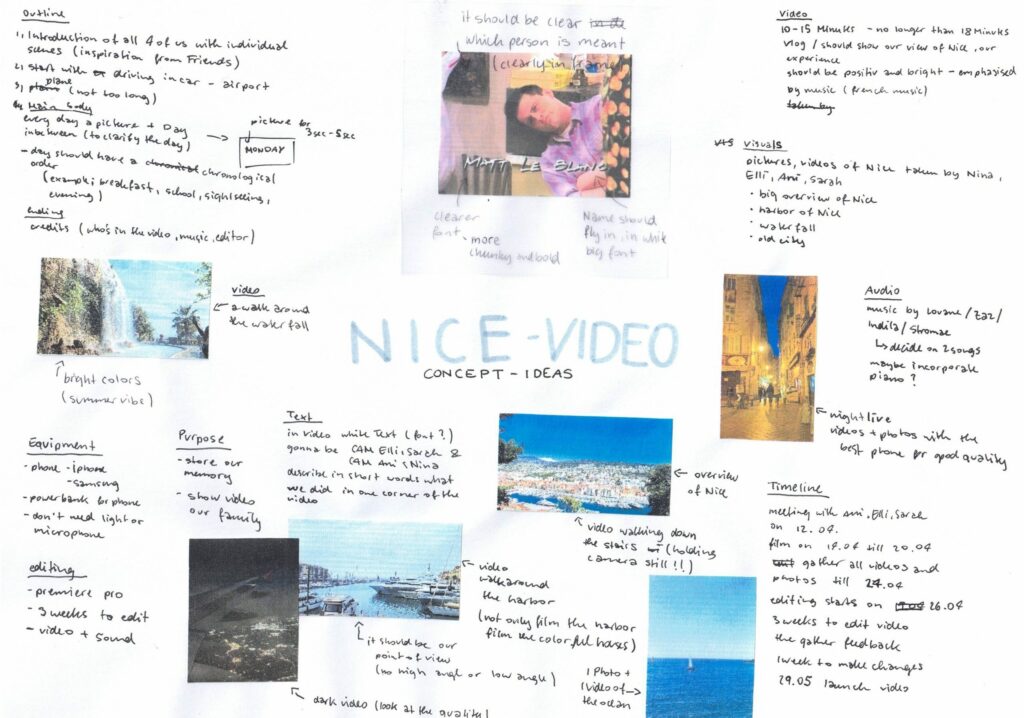 Outline
1, Introduction of all 4 of us with individual
scenes (inspiration from Friends)
2, start with driving in car - airport
3, plane (not too long)
4, Main body
every day a picture + Day
inbetween (to clarify the day)
picture for
3sec - 5sec
MONDAY
- day should have a chronological
order
(example; breakfast, school, sightseeing,
evening)
ending
credits (who's in the video, music, editor)
it should be clear
which person is meant
(clearly in frame)
MATT LE BLANC
clearer
font
- more
chunky and bold
Name should
fly in, in white
big font
Video
10-15 Minutes - no longer than 18 Minuts
Vlog / should show our view of Nice, our
experience
should be positiv and bright - emphasised
by music (french music)
taken by
Visuals
pictures, videos of Nice taken by Nina,
Elli, Ami, Sarah
• big overview of Nice
• harbor of Nice
• waterfall
• old city
video
a walk around
the waterfall
bright colors
(summer vibe)
NICE - VIDEO
CONCEPT - IDEAS
Audio
music by Lovane / Zaz /
Indila / Stromae
decide on 2 songs
maybe incorporate
piano?
nightlive
videos + photos with the
best phone for good quality
Equipment
- phone - iphone
- samsung
- powerbank for phone
- don't need light or
microphone
Purpose
- store our
memory
- show video
our family
Text
in video white Text (font?)
gonna be CAM Elli, Sarah &
CAM Ami, Nina
describe in short words what
we did in one corner of the
video
overview
of Nice
video walking down
the stairs (holding
camera still!!)
editing
- premiere pro
- 3 weeks to edit
- video + sound
video
walkaround
the harbor
(not only film the harbor
film the colorfull houses)
it should be our
point of view
(no high angl or low angle)
dark video (look at the quality!
1 Photo +
1 video of
the ocean
Timeline
meeting with Ami, Elli, Sarah
on 12.04
film on 14.04 till 20.04
gather all videos and
photos till 24.04
editing starts on 26.04
3 weeks to edit video
the gather feedback
1 week to make changes
29.05 launch video